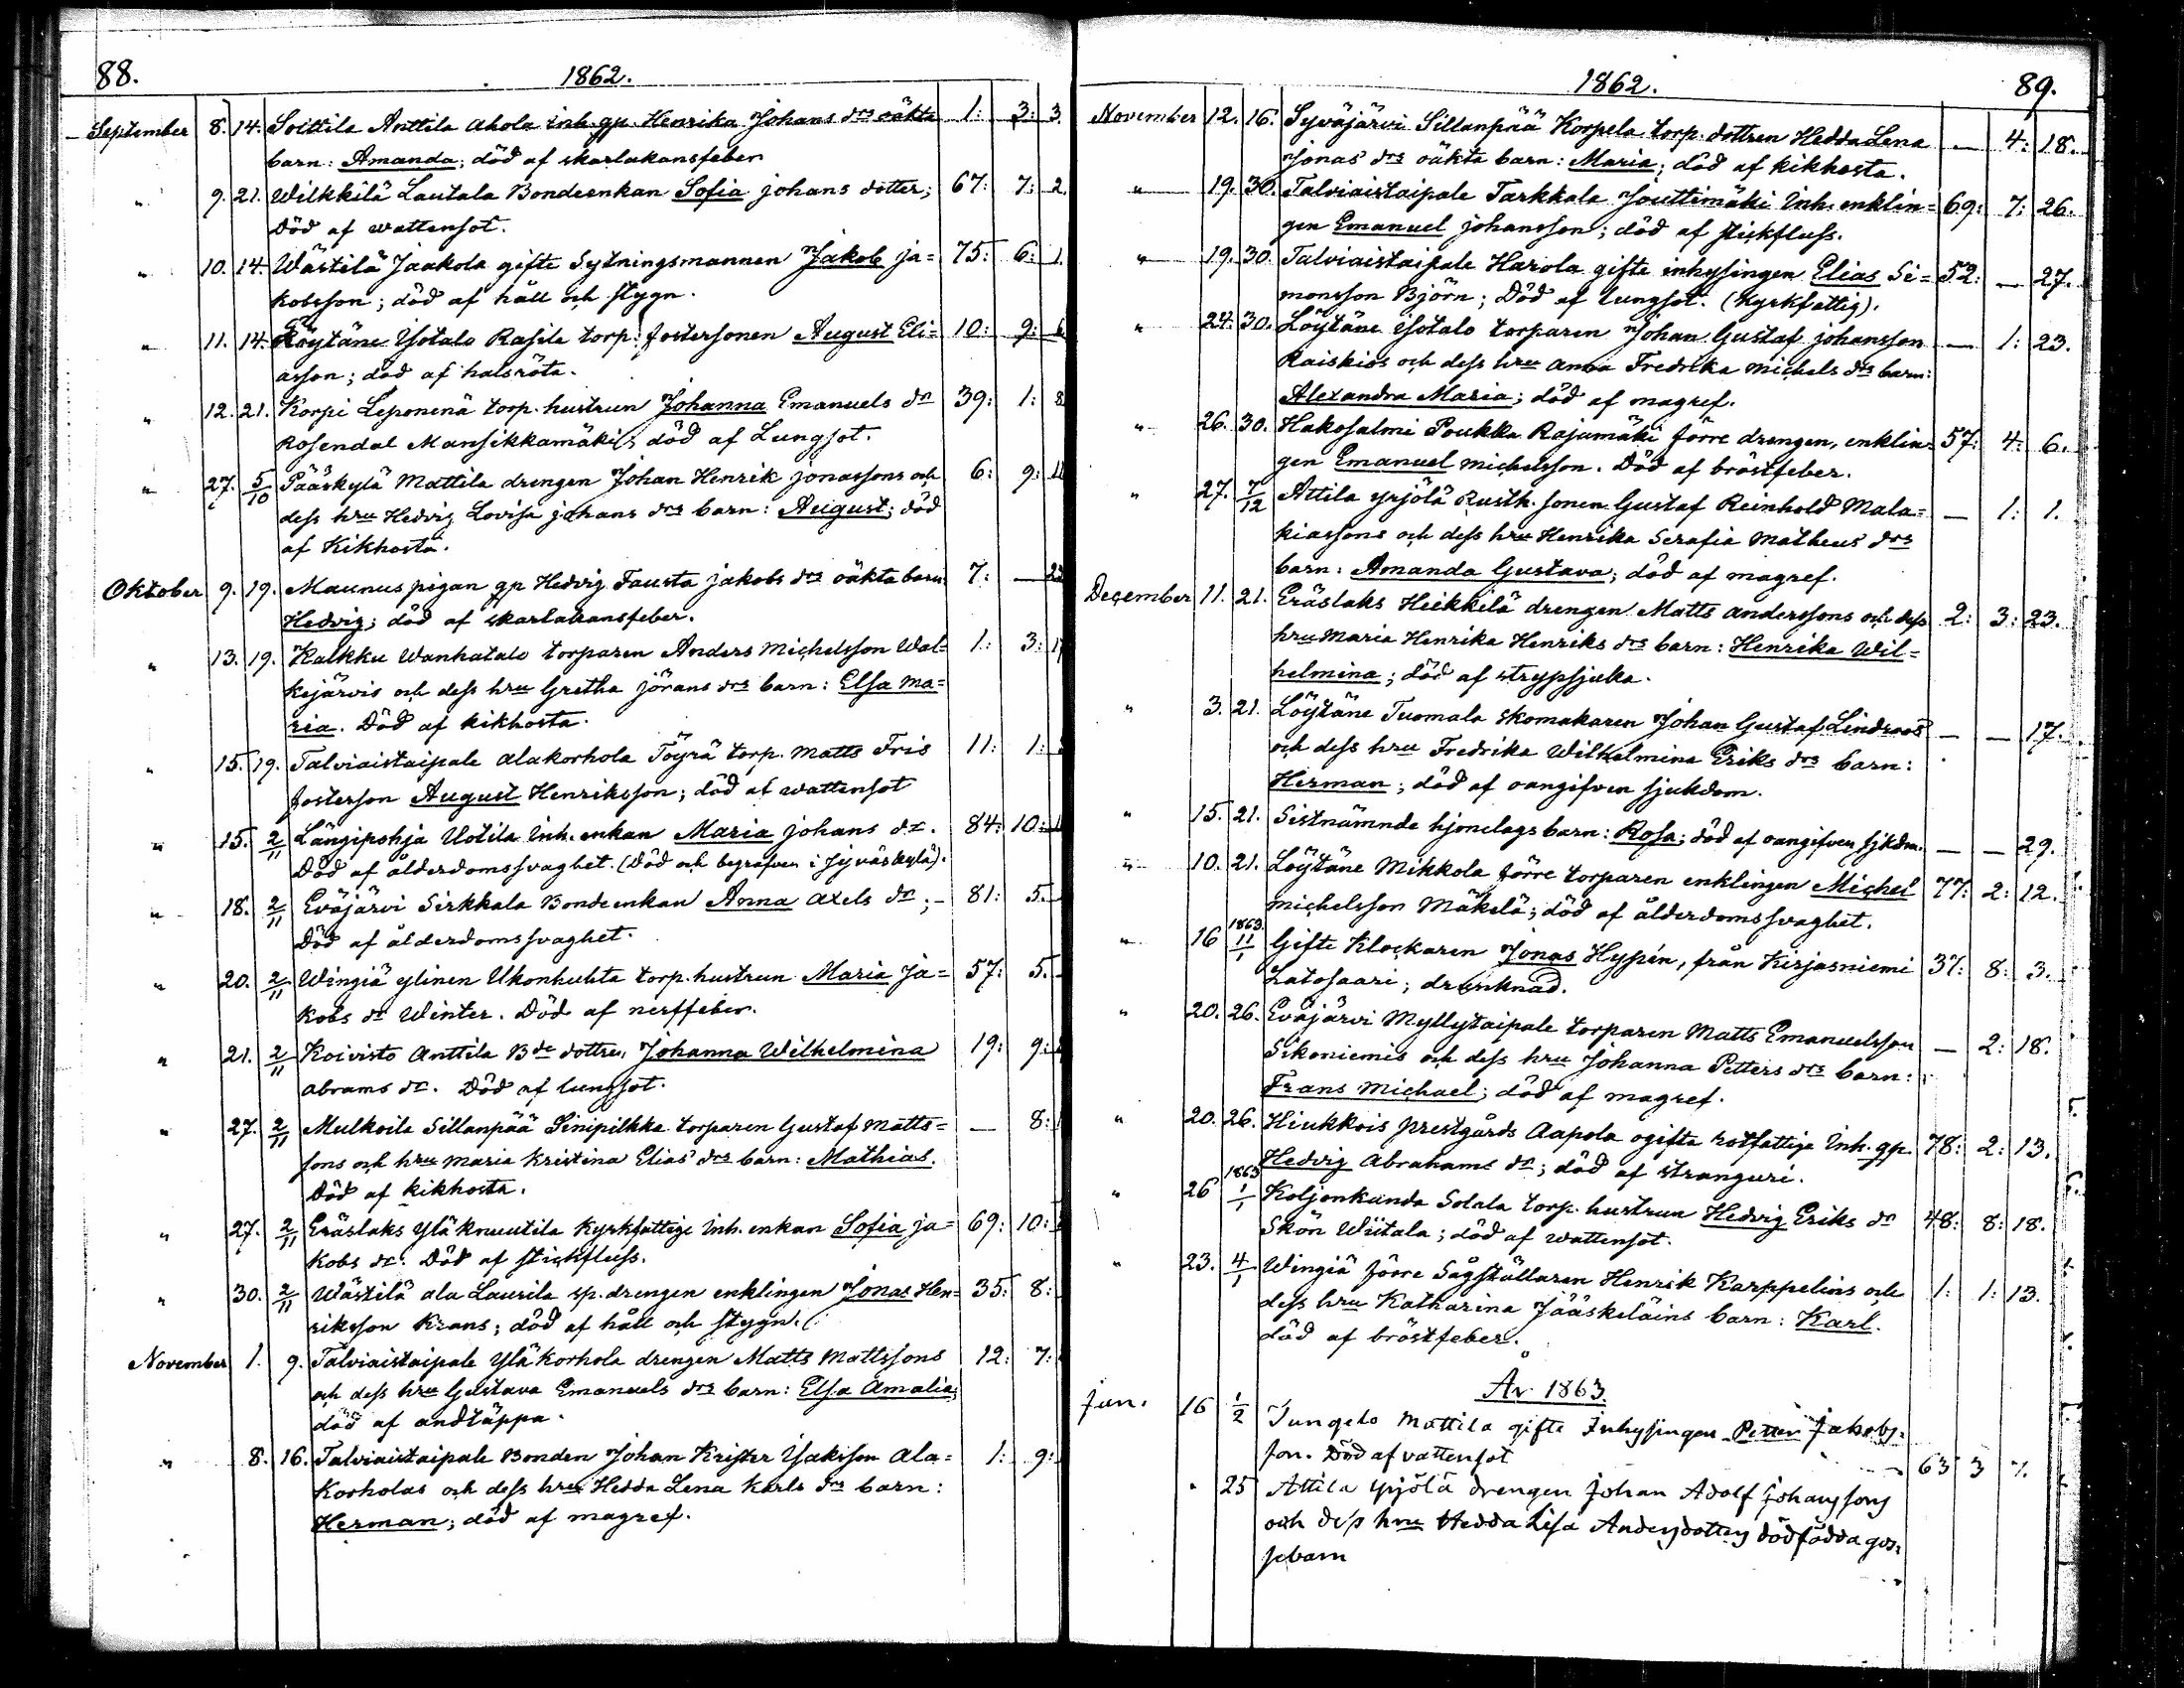 88.
1862.
September 8. 14. Soittila Anttila Ahola inh. gp. Henrika Johans drs oäkta 1: 3: 3.
barn: Amanda; död af skarlakansfeber
" 9. 21. Wilkkilä Lautala Bondeenkan Sofia Johans dotter; 67: 7: 2.
Död af wattensot.
" 10. 14. Wästilä Jaakola gifte Sytningsmannen Jakob Ja= 75: 6: 1.
kobsson; död af håll och stygn.
" 11. 14. Löytäne Isotalo Rasila torp. fostersonen August Eli= 10: 9: 6
asson; död af halsröta.
" 12. 21. Korpi Leponenä torp. hustrun Johanna Emanuels dr 39: 1: 8
Rosendal Mansikkamäki; död af Lungsot.
" 27. 5/10 Pääskylä Mattila drengen Johan Henrik Jonassons och 6: 9:
dess hru Hedvig Lovisa Johans drs barn: August; död
af Kikhosta.
Oktober 9. 19. Maunus pigan gp Hedvig Fausta Jakobs drs oäkta barn 7: —
Hedvig; död af skarlakansfeber.
" 13. 19. Kalkku Wanhatalo torparen Anders Michelsson Wal= 1: 3:
kejärvis och dess hru Gretha Jörans drs barn: Elsa Ma=
ria. Död af kikhosta.
" 15. 19. Talviaistaipale Alakorhola Töyrä torp. Matts Fris 11: 1:
fosterson August Henriksson; död af wattensot
" 15. 2/11 Längipohja Uotila Inh. enkan Maria Johans dr. 84: 10:
Död af ålderdomssvaghet. (Död och begrafven i Jyväskylä).
" 18. 2/11 Eväjärvi Sirkkala Bondeenkan Anna Axels dr; – 81: 5.
Död af ålderdomssvaghet.
" 20. 2/11 Wingiä Ylinen Ukonhuhta torp. hustrun Maria Ja= 57: 5.
kobs dr Winter. Död af nerffeber.
" 21. 2/11 Koivisto Anttila Bde dottren Johanna Wilhelmina 19: 9:
Abrams dr. Död af lungsot.
" 27. 2/11 Mulkoila Sillanpää Sinipilkka torparen Gustaf Matts= — 8:
sons och hru Maria Kristina Elias drs barn: Mathias.
Död af kikhosta.
" 27. 2/11 Eräslaks Yläknuutila Kyrkfattige Inh. enkan Sofia Ja= 69: 10:
kobs dr. Död af stickfluss.
" 30. 2/11 Wästilä Ala Laurila sp. drengen enklingen Jonas Hen= 35: 8:
riksson Krans; död af håll och stygn.
November 1. 9. Talviaistaipale Yläkorhola drengen Matts Mattssons 12: 7:
och dess hru Gustava Emanuels drs barn: Elsa Amalia;
död af andtäppa.
" 8. 16. Talviaistaipale Bonden Johan Krister Isaksson Ala= 1: 9:
Korholas och dess hru Hedda Lena Karls drs barn:
Herman; död af magref.
1862.
89.
November 12. 16. Syväjärvi Sillanpää Korpela torp. dottren Hedda Lena — 4: 18.
Jonas drs oäkta barn: Maria; död af kikhosta.
" 19. 30. Talviaistaipale Tarkkala Jouttimäki Inh. enklin= 69: 7: 26.
gen Emanuel Johansson; död af stickfluss.
" 19. 30. Talviaistaipale Harola gifte inhysingen Elias Si= 52: — 27.
monsson Björn; Död af lungsot. (Kyrkfattig).
" 24. 30. Löytäne Isotalo torparen Johan Gustaf Johansson — 1: 23.
Raiskios och dess hru Anna Fredrika Michels drs barn:
Alexandra Maria; död af magref.
" 26. 30. Hakosalmi Poukka Rajamäki förre drengen, enklin= 57: 4: 6.
gen Emanuel Michelsson. Död af bröstfeber.
" 27. 7/12 Attila Yrjölä Rusth. sonen Gustaf Reinhold Mala= — 1: 1.
kiassons och dess hru Henrika Serafia Matheus drs
barn: Amanda Gustava; död af magref.
December 11. 21. Eräslaks Heikkilä drengen Matts Anderssons och dess 2: 3: 23.
hru Maria Henrika Henriks drs barn: Henrika Wil=
helmina; död af strypsjuka.
" 3. 21. Löytäne Tuomala skomakaren Johan Gustaf Lindroos — — 17.
och dess hru Fredrika Wilhelmina Eriks drs barn:
Herman; död af oangifven sjukdom.
" 15. 21. Sistnämnde hjonelags barn: Rosa; död af oangifven sjkdm. — — 29.
" 10. 21. Löytäne Mikkola förre torparen enklingen Michel 77: 2: 12.
Michelsson Mäkelä; död af ålderdomssvaghet.
" 16 1863. 11/1 Gifte Klockaren Jonas Hypén, från Kirjasniemi 37: 8: 3.
Latosaari; drunknad.
" 20. 26. Eväjärvi Myllytaipale torparen Matts Emanuelsson — 2: 18.
Sikoniemis och dess hru Johanna Petters drs barn:
Frans Michael; död af magref.
" 20. 26. Hiukkois prestgårds Aapola ogifta rotfattige Inh. gp. 78: 2: 13.
Hedvig Abrahams dr; död af stranguri.
" 26 1863 1/1 Koljonkanda Solala torp. hustrun Hedvig Eriks dr 48: 8: 18.
Skön Wiitala; död af wattensot.
" 23. 4/1 Wingiä förre Sågställaren Henrik Karppelins och 1: 1: 13.
dess hru Katharina Jääskeläins barn: Karl.
död af bröstfeber.
År 1863
Jan. 16 1/2 Jungelo Mattila gifte Inhysingen Petter Jakobs=
son. Död af vattensot 63 3 7.
" 25 Attila Yrjölä drengen Johan Adolf Johanssons
och dess hru Hedda Lisa Andersdotters dödfödda gos=
sebarn